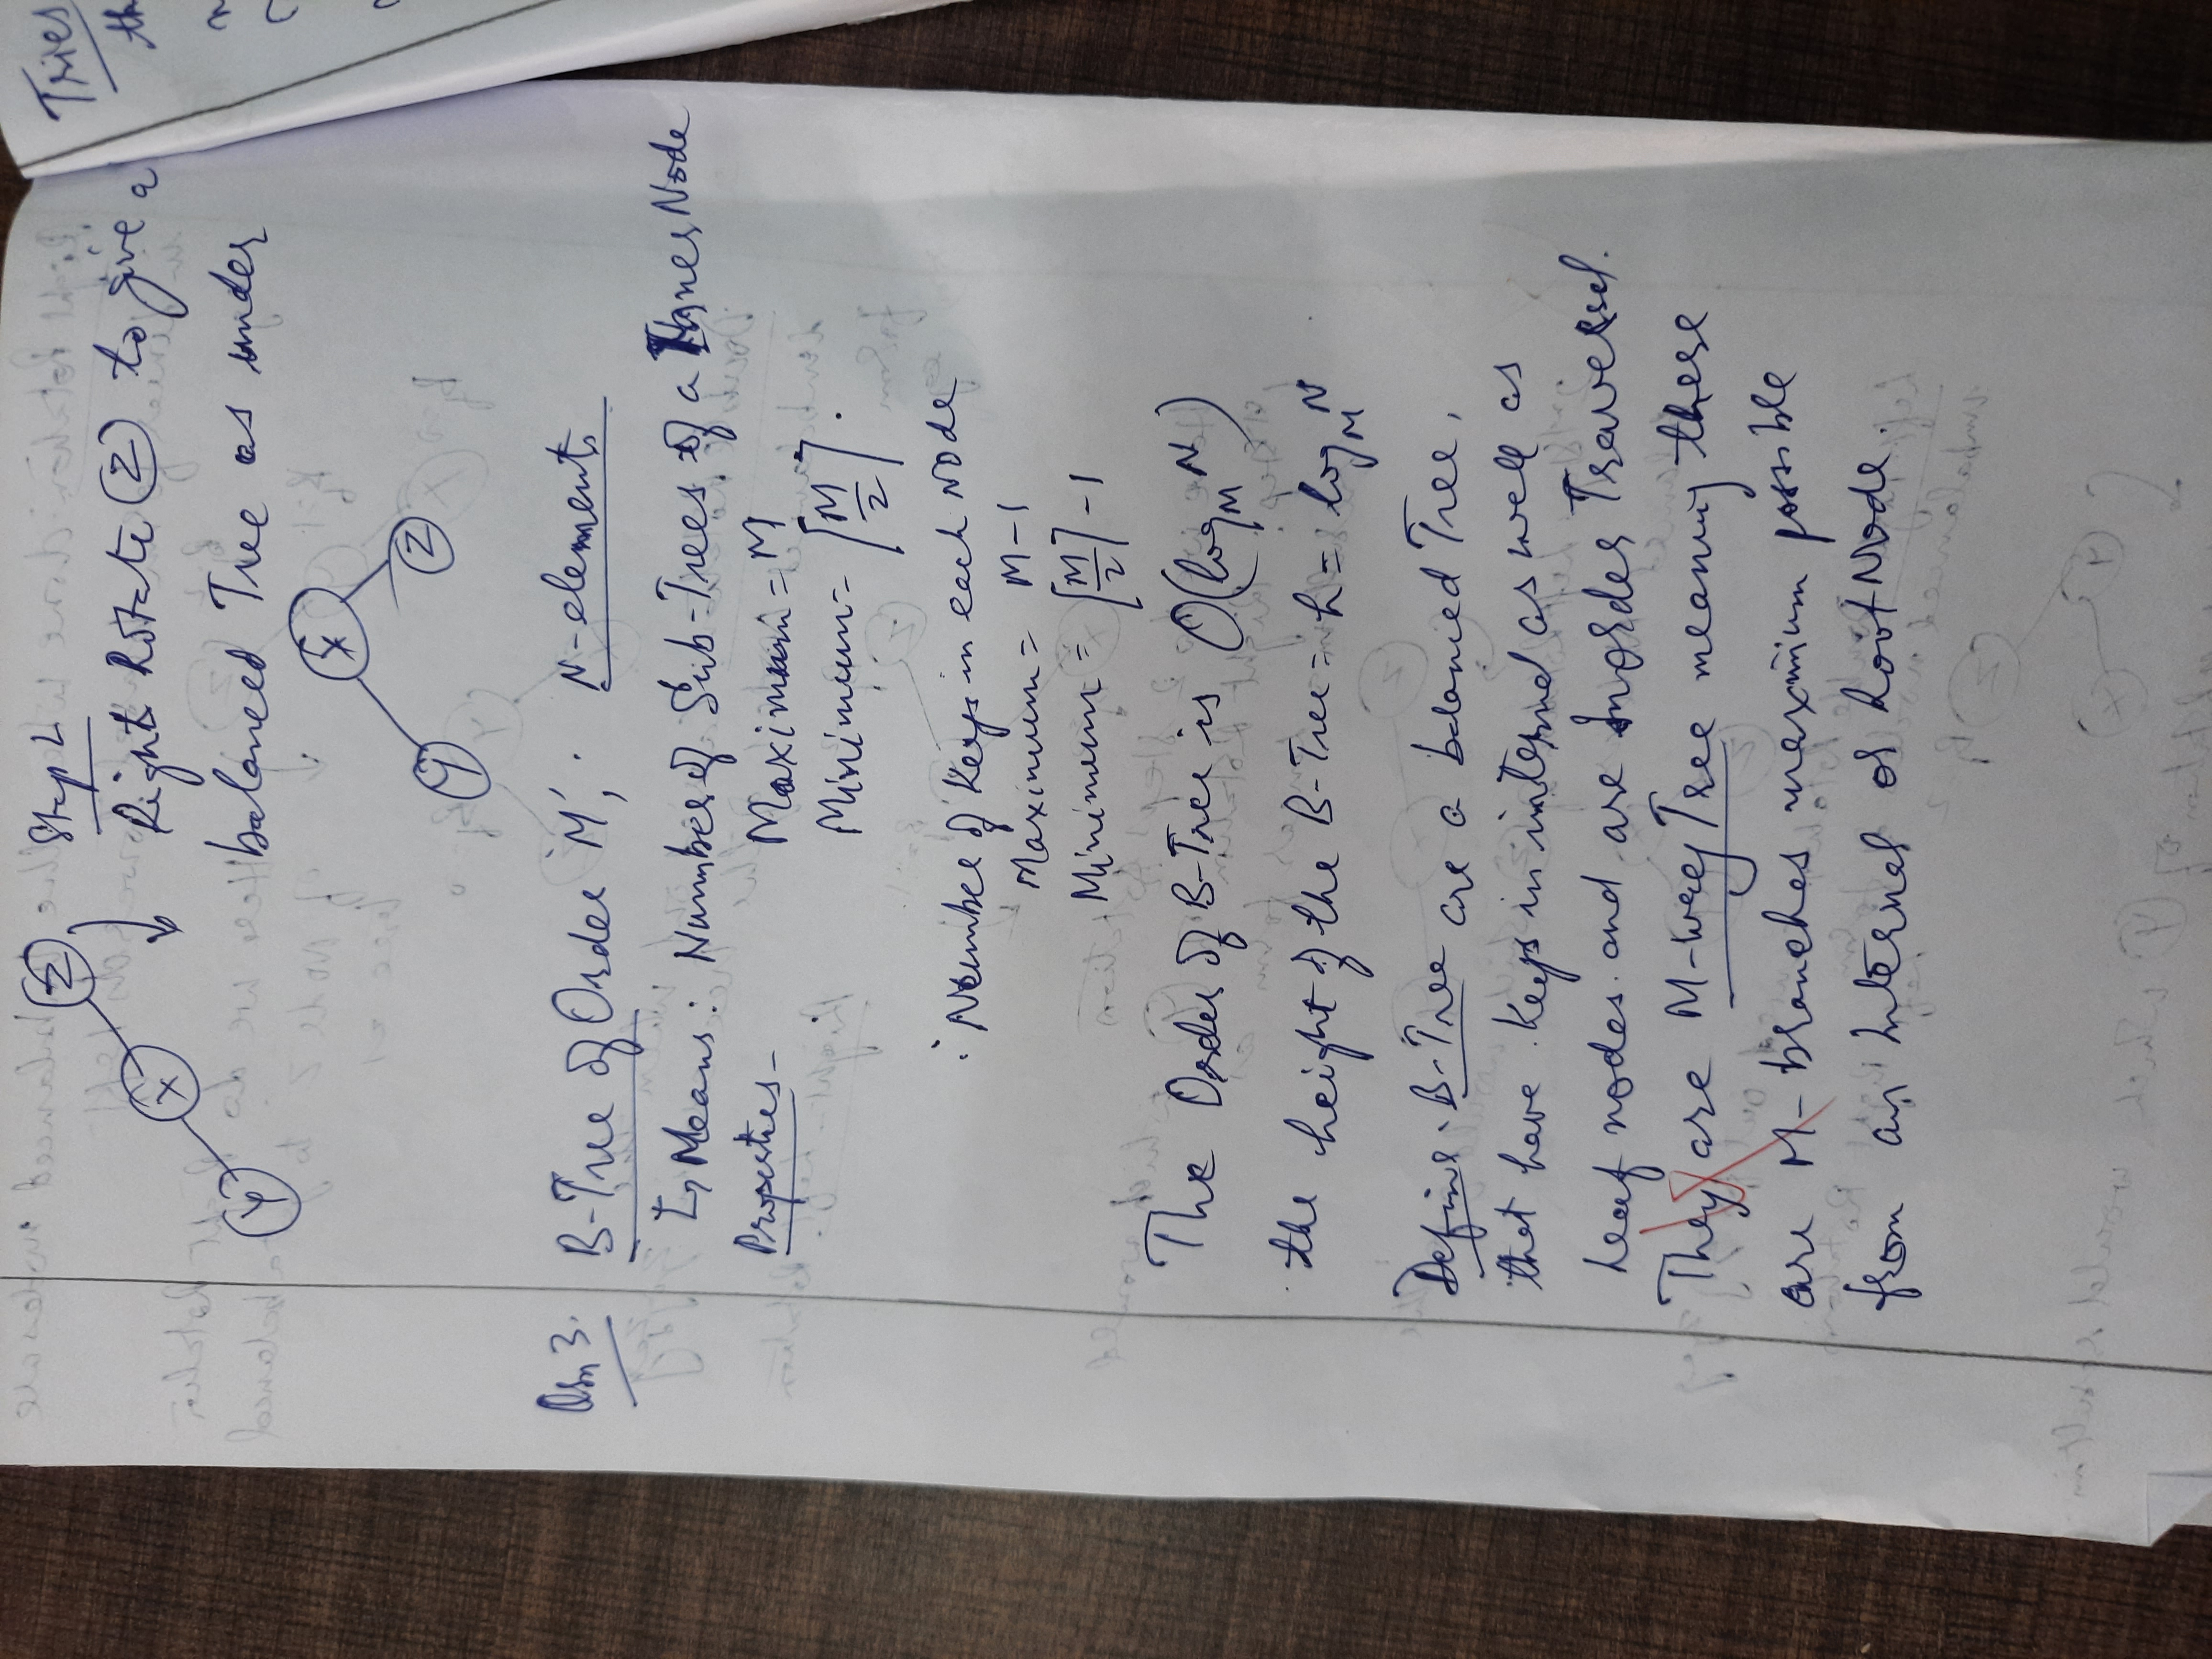 Z
Step 2
X
Right Rotate Z to give a
Y
balanced Tree as under
X
Y
Z
Qsn 3.
B-Tree of Order 'M', N-elements
↳ Means: Number of Sub-Trees of a Inner Node
Properties -
Maximum = M
Minimum = ⌈M/2⌉.
: Number of Keys in each Node
Maximum = M-1
Minimum = ⌈M/2⌉-1
The Order of B-Tree is O(log_M N)
the height of the B-Tree = h = log_M N
Define: B-Tree are a balanced Tree,
that have Keys in internal as well as
Leaf nodes. and are Inorder Traversal.
They are M-way Tree meaning there
are M- branches maximum possible
from an Internal or Root Node.
Tries
th